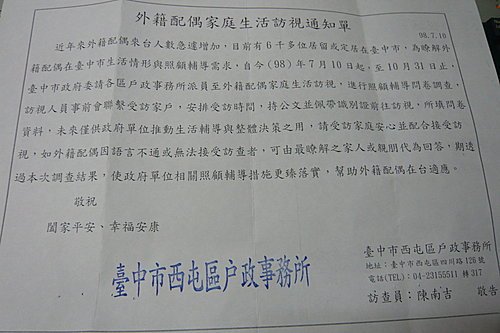 外籍配偶家庭生活訪視通知單
98.7.10
近年來外籍配偶來台人數急遽增加,目前有6千多位居留或定居在臺中市,為瞭解外
籍配偶在臺中市生活情形與照顧輔導需求,自今(98)年7月10日起,至10月31日止,
臺中市政府委請各區戶政事務所派員至外籍配偶家庭生活訪視,進行照顧輔導問卷調查,
訪視人員事前會聯繫受訪家戶,安排受訪時間,持公文並佩帶識別證前往訪視,所填問卷
資料,未來僅供政府單位推動生活輔導與整體決策之用,請受訪家庭安心並配合接受訪
視,如外籍配偶因語言不通或無法接受訪查者,可由最瞭解之家人或親朋代為回答,期透
過本次調查結果,使政府單位相關照顧輔導措施更臻落實,幫助外籍配偶在台適應。
敬祝
闔家平安、幸福安康
臺中市西屯區戶政事務所
臺中市西屯區戶政事務所
地址:臺中市西屯區四川路126號
電話(TEL):04-23155511 轉317
訪查員:陳南吉 敬告